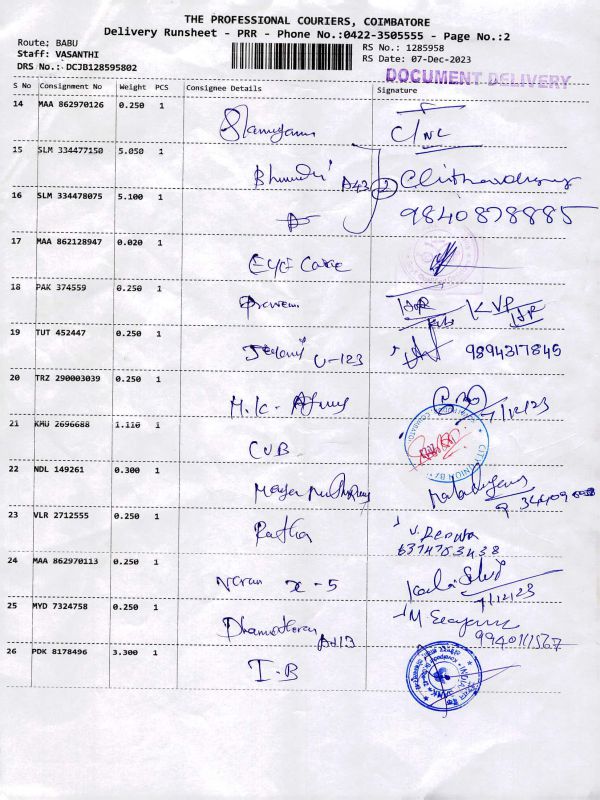 THE PROFESSIONAL COURIERS, COIMBATORE
Delivery Runsheet - PRR - Phone No.:0422-3505555 - Page No.:2
Route: BABU
Staff: VASANTHI
DRS No.: DCJB128595802
RS No.: 1285958
RS Date: 07-Dec-2023
DOCUMENT DELIVERY
S No Consignment No Weight PCS Consignee Details Signature
14 MAA 862970126 0.250 1
15 SLM 334477150 5.050 1 A43 2
16 SLM 334478075 5.100 1 9840878885
17 MAA 862128947 0.020 1 EYE Care
18 PAK 374559 0.250 1 Praveen KVP
19 TUT 452447 0.250 1 U-123 9894317845
20 TRZ 290003039 0.250 1 M.K. 7/12/23
21 KMU 2696688 1.110 1 CUB
22 NDL 149261 0.300 1
23 VLR 2712555 0.250 1 Radha V. Renuka
6374763438
24 MAA 862970113 0.250 1 X-5
7/12/23
25 MYD 7324758 0.250 1 M
9940111567
26 PDK 8178496 3.300 1 I-B